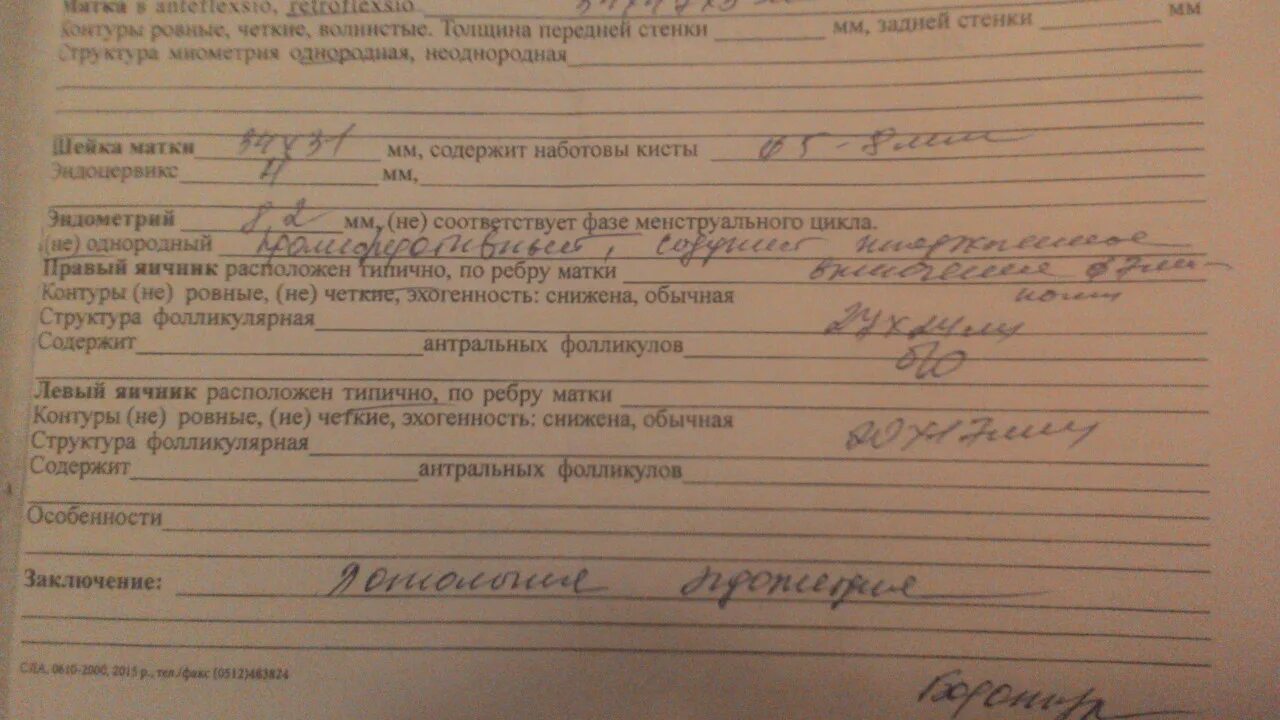 Матка в anteflexsio, retroflexsio
Контуры ровные, четкие, волнистые. Толщина передней стенки мм, задней стенки мм
Структура миометрия однородная, неоднородная
Шейка матки 34х31 мм, содержит наботовы кисты ф5-8мм
Эндоцервикс Н мм,
Эндометрий 8,2 мм, (не) соответствует фазе менструального цикла.
(не) однородный содержит
Правый яичник расположен типично, по ребру матки включение ф7мм
Контуры (не) ровные, (не) четкие, эхогенность: снижена, обычная
Структура фолликулярная 27х24мм
Содержит антральных фолликулов б/о
Левый яичник расположен типично, по ребру матки
Контуры (не) ровные, (не) четкие, эхогенность: снижена, обычная 20х17мм
Структура фолликулярная
Содержит антральных фолликулов
Особенности
Заключение: Патология эндометрия
СЛА, 0610-2000, 2015 р., тел./факс (0512)463824